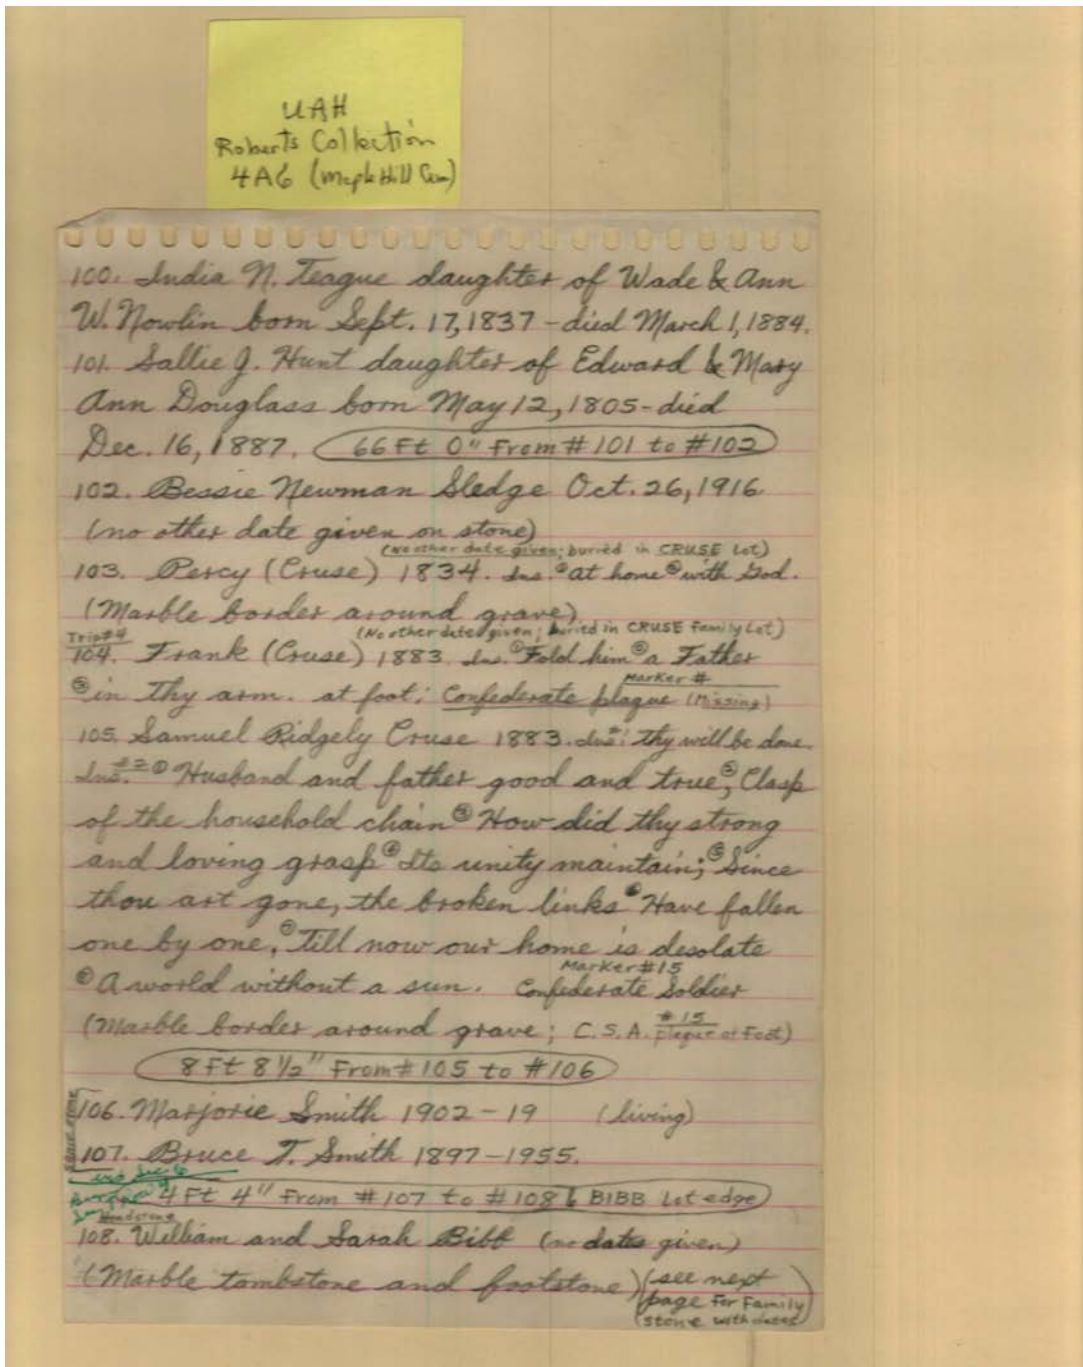 UAH
Roberts Collection
4A6 (Maple Hill Cem)
100. India N. Teague daughter of Wade & Ann
W. Nowlin born Sept. 17, 1837 - died March 1, 1884.
101. Sallie J. Hunt daughter of Edward & Mary
Ann Douglass born May 12, 1805 - died
Dec. 16, 1887. 66 Ft 0" From # 101 to #102
102. Bessie Newman Sledge Oct. 26, 1916.
(no other date given on stone)
(No other date given; buried in CRUSE Lot)
103. Percy (Cruse) 1834. Ins. ① at home ② with God.
(Marble border around grave)
Trip #4 (No other dates given; buried in CRUSE Family Lot)
104. Frank (Cruse) 1883. Ins. ① Fold him ② a Father
Marker #
③ in Thy arm. at foot: Confederate plaque (Missing)
105. Samuel Ridgely Cruse 1883. Ins #1: Thy will be done.
Ins. #2 ① Husband and father good and true, ② Clasp
of the household chain ③ How did thy strong
and loving grasp ④ Its unity maintain; ⑤ Since
thou art gone, the broken links ⑥ Have fallen
one by one, ⑦ Till now our home is desolate
Marker #15
⑧ A world without a sun. Confederate Soldier
(Marble border around grave; C.S.A. #15 plaque at Foot)
8 Ft 8 1/2" From # 105 to #106
106. Marjorie Smith 1902 - 19 (living)
107. Bruce T. Smith 1897 - 1955.
4 Ft 4" From #107 to #108 & BIBB Lot edge
Headstone
108. William and Sarah Bibb (no dates given)
(Marble tombstone and footstone) (see next
page For Family
stone with dates)